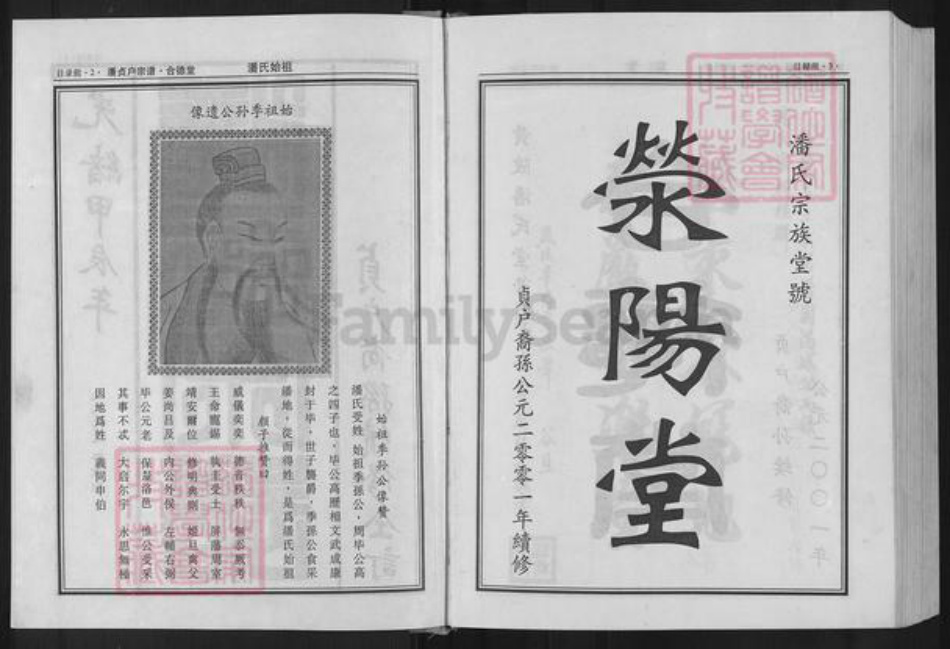 目录前·3·
潘氏宗族堂號
滎陽堂
貞户裔孫公元二零零一年續修
目录前·2·潘贞户宗谱·合德堂
潘氏始祖
始祖季孙公遺像
始祖季孫公像贊
潘氏受姓始祖季孫公，周毕公高
之四子也，毕公高歷相文武成康
封于毕，世子襲爵，季孫公食采
潘地，從而得姓，是爲潘氏始祖
顏子推贊曰
威儀奕奕 德音秩秩
王命寵錫 执圭受土 屏藩周室
靖安厥位 修明典則
姜尚吕及 内公外侯 左輔右弼
毕公元老 保釐洛邑 惟公受采
其事不忒 大启尔宇 永思無極
因地爲姓 義同申伯
FamilySearch